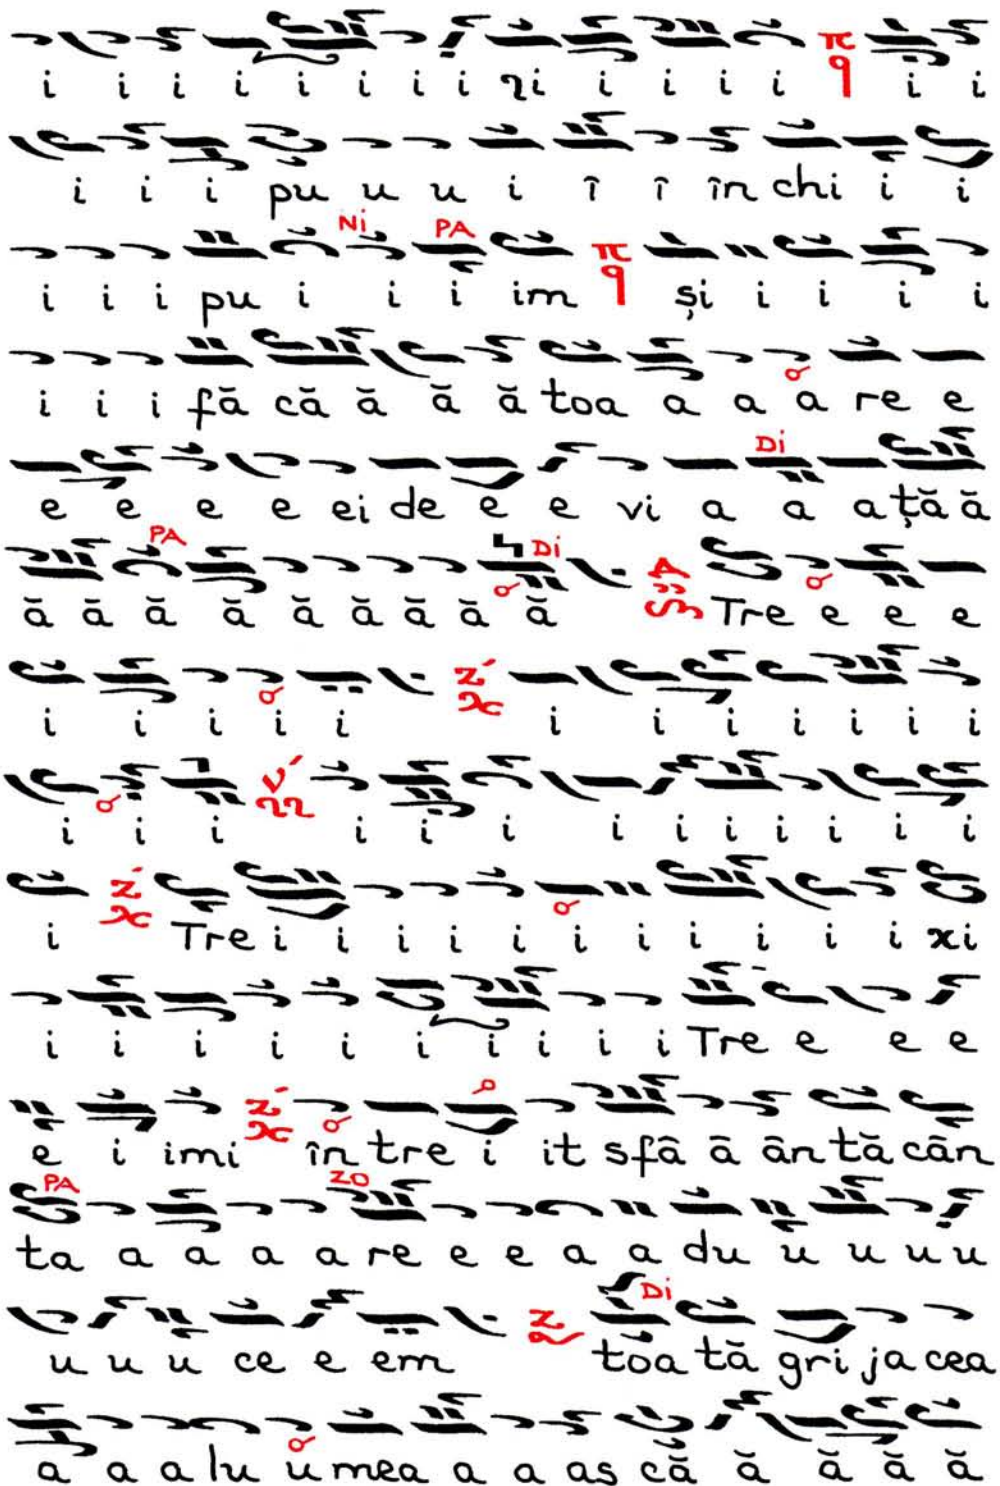 i i i i i i i i ηi i i i i π q i i
i i i pu u u i î î în chi i i
Ni PA
i i i pu i i i im π q și i i i i
i i i fă că ă ă ă toa a a a re e
Di
e e e e ei de e e vi a a a ță ă
PA Di
ă ă ă ă ă ă ă ă ă Δ Tre e e e
i i i i i z' i i i i i i i
i i i ν' i i i i i i i i i i
i z' Tre i i i i i i i i i i i xi
i i i i i i i i i i Tre e e e
e i imi z' în tre i it sfâ â ân tă cân
PA ZO
ta a a a a re e e a a du u u u u
Di
u u u ce e em z toa tă gri ja cea
a a a lu u mea a a as că ă ă ă ă